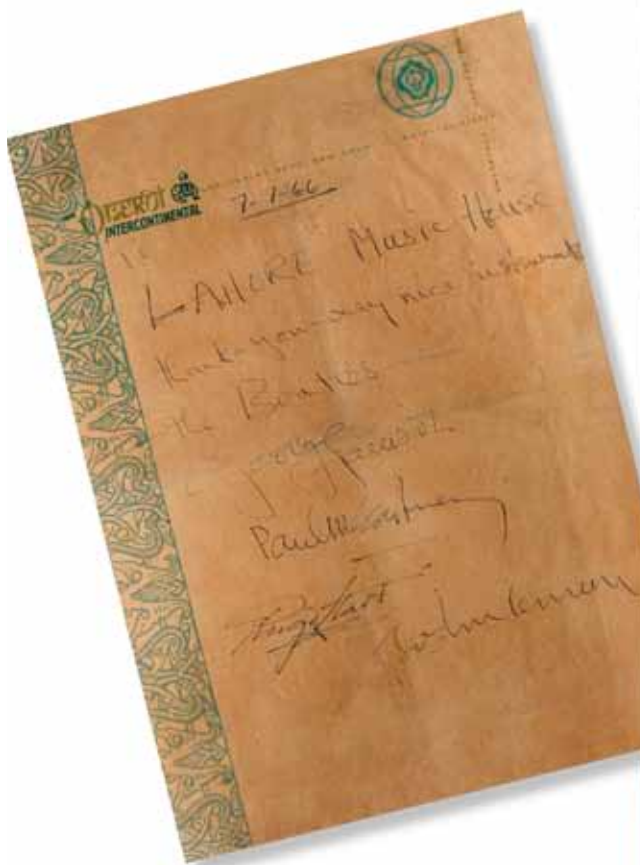 OBEROI
INTERCONTINENTAL
7.7.66
To
LAHORE Music House
Thank you very nice instruments
the Beatles
George Harrison
Paul McCartney
Ringo Starr
John Lennon